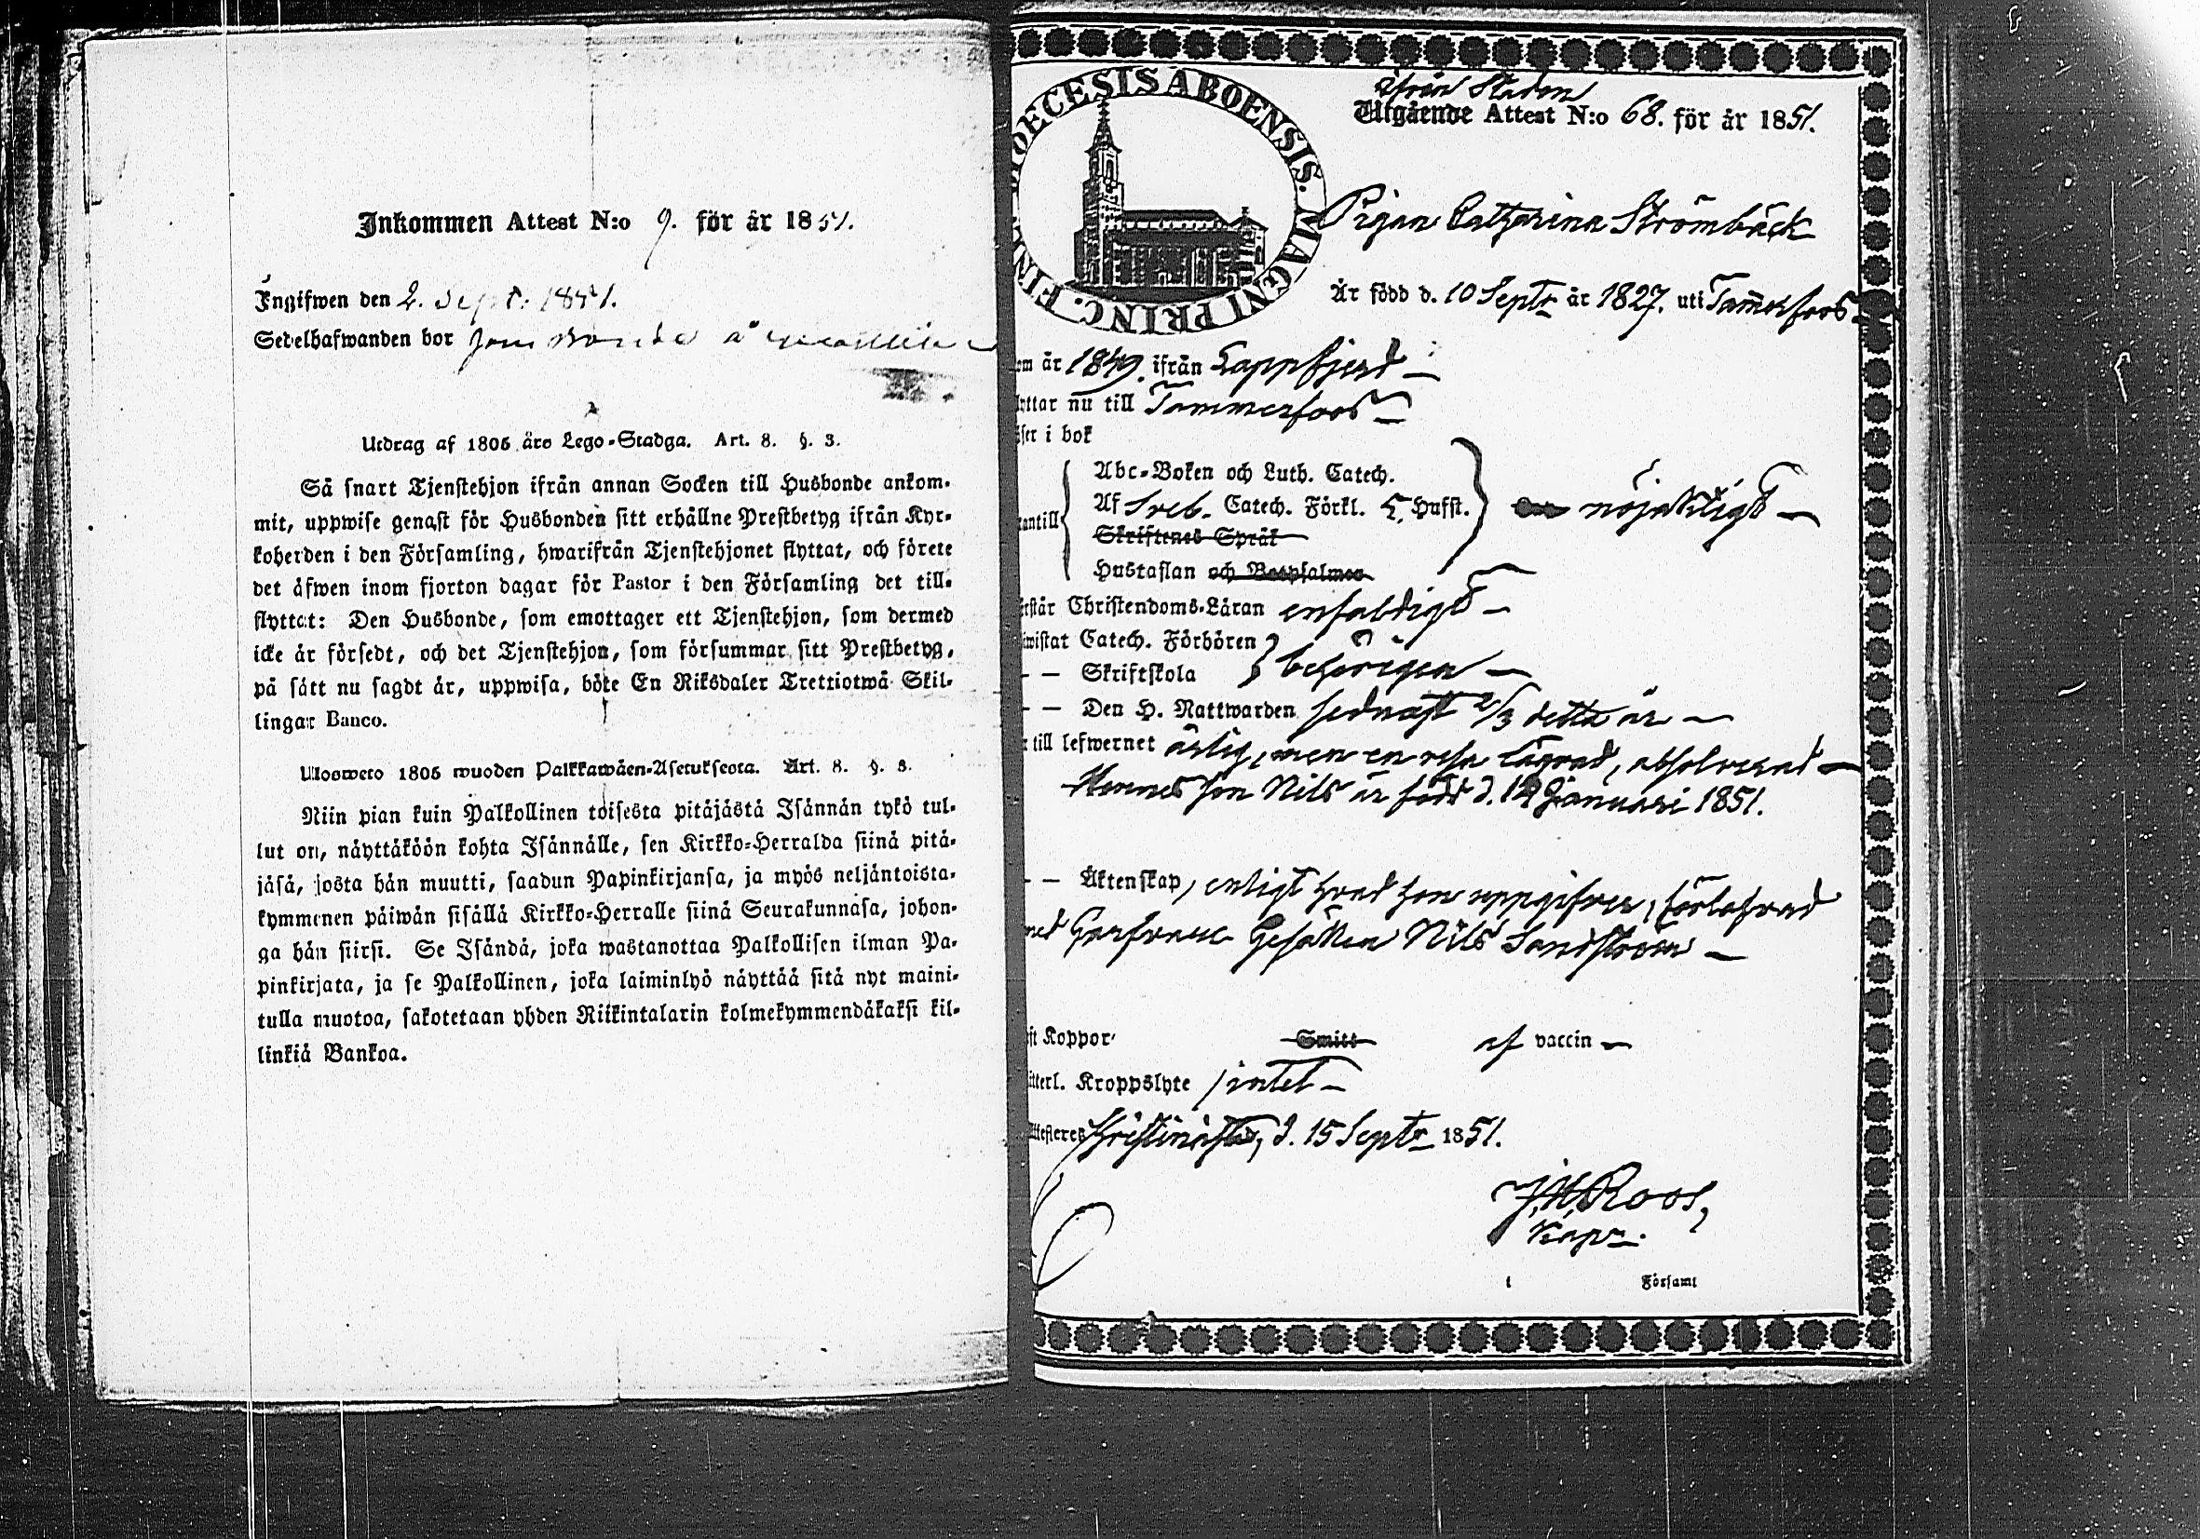 Inkommen Attest N:o 9. för år 1851.
Ingifwen den 2. Sept. 1851.
Sedelhafwanden bor
Utdrag af 1805 års Lego-Stadga. Art. 8. §. 3.
Så snart Tjenstehjon ifrån annan Socken till Husbonde ankom-
mit, uppwise genast för Husbonden sitt erhållne Prestbetyg ifrån Kyr-
koherden i den Församling, hwarifrån Tjenstehjonet flyttat, och förete
det äfwen inom fjorton dagar för Pastor i den Församling det till-
flyttat: Den Husbonde, som emottager ett Tjenstehjon, som dermed
icke är försedt, och det Tjenstehjon, som försummar sitt Prestbetyg,
på sätt nu sagdt är, uppwisa, böte En Riksdaler Trettiotwå Skil-
lingar Banco.
Ulosweto 1805 wuoden Palkkawäen-Asetuksesta. Art. 8. §. 3.
Niin pian kuin Palkollinen toisesta pitäjästä Isännän tykö tul-
lut on, näyttäköön kohta Isännälle, sen Kirkko-Herralda siinä pitä-
jäsä, josta hän muutti, saadun Papinkirjansa, ja myös neljäntoista-
kymmenen päiwän sisällä Kirkko-Herralle siinä Seurakunnasa, johon-
ga hän siirsi. Se Isändä, joka wastanottaa Palkollisen ilman Pa-
pinkirjata, ja se Palkollinen, joka laiminlyö näyttää sitä nyt maini-
tulla muotoa, sakotetaan yhden Riikintalarin kolmekymmendäkaksi kil-
linkiä Bankoa.
DIOECESIS ABOENSIS. MAGNI PRINC. FIN
ifrån Staden
Utgående Attest N:o 68. för år 1851.
Pigan Catharina Strömbäck
Är född d. 10 Septr år 1827. uti Tammerfors
om år 1849. ifrån Lappfjerd
yttar nu till Tammerfors
ser i bok
Abc-Boken och Luth. Catech.
antill Af Sveb. Catech. Förkl. L. Husst. nöjaktigt
Skriftenes Språk
Hustaflan och Botpsalmer
rstår Christendoms-Läran enfaldigt
iwistat Catech. Förhören
— — Skriftskola behörigen
— — Den H. Nattwarden sednast 2/3 detta år
r till lefwernet ärlig, men en resa lägrad, absolverad
Hennes son Nils är född d. 12 Januari 1851.
— — Äktenskap, enligt hvad hon uppgifver, förlofvad
med Garfvare Gesällen Nils Sandström
ft Koppor Smitt af vaccin
tterl. Kroppslyte intet
ttesteres Christinestad, d. 15 Septr 1851.
J.H. Roos,
Kapn.
i Församl